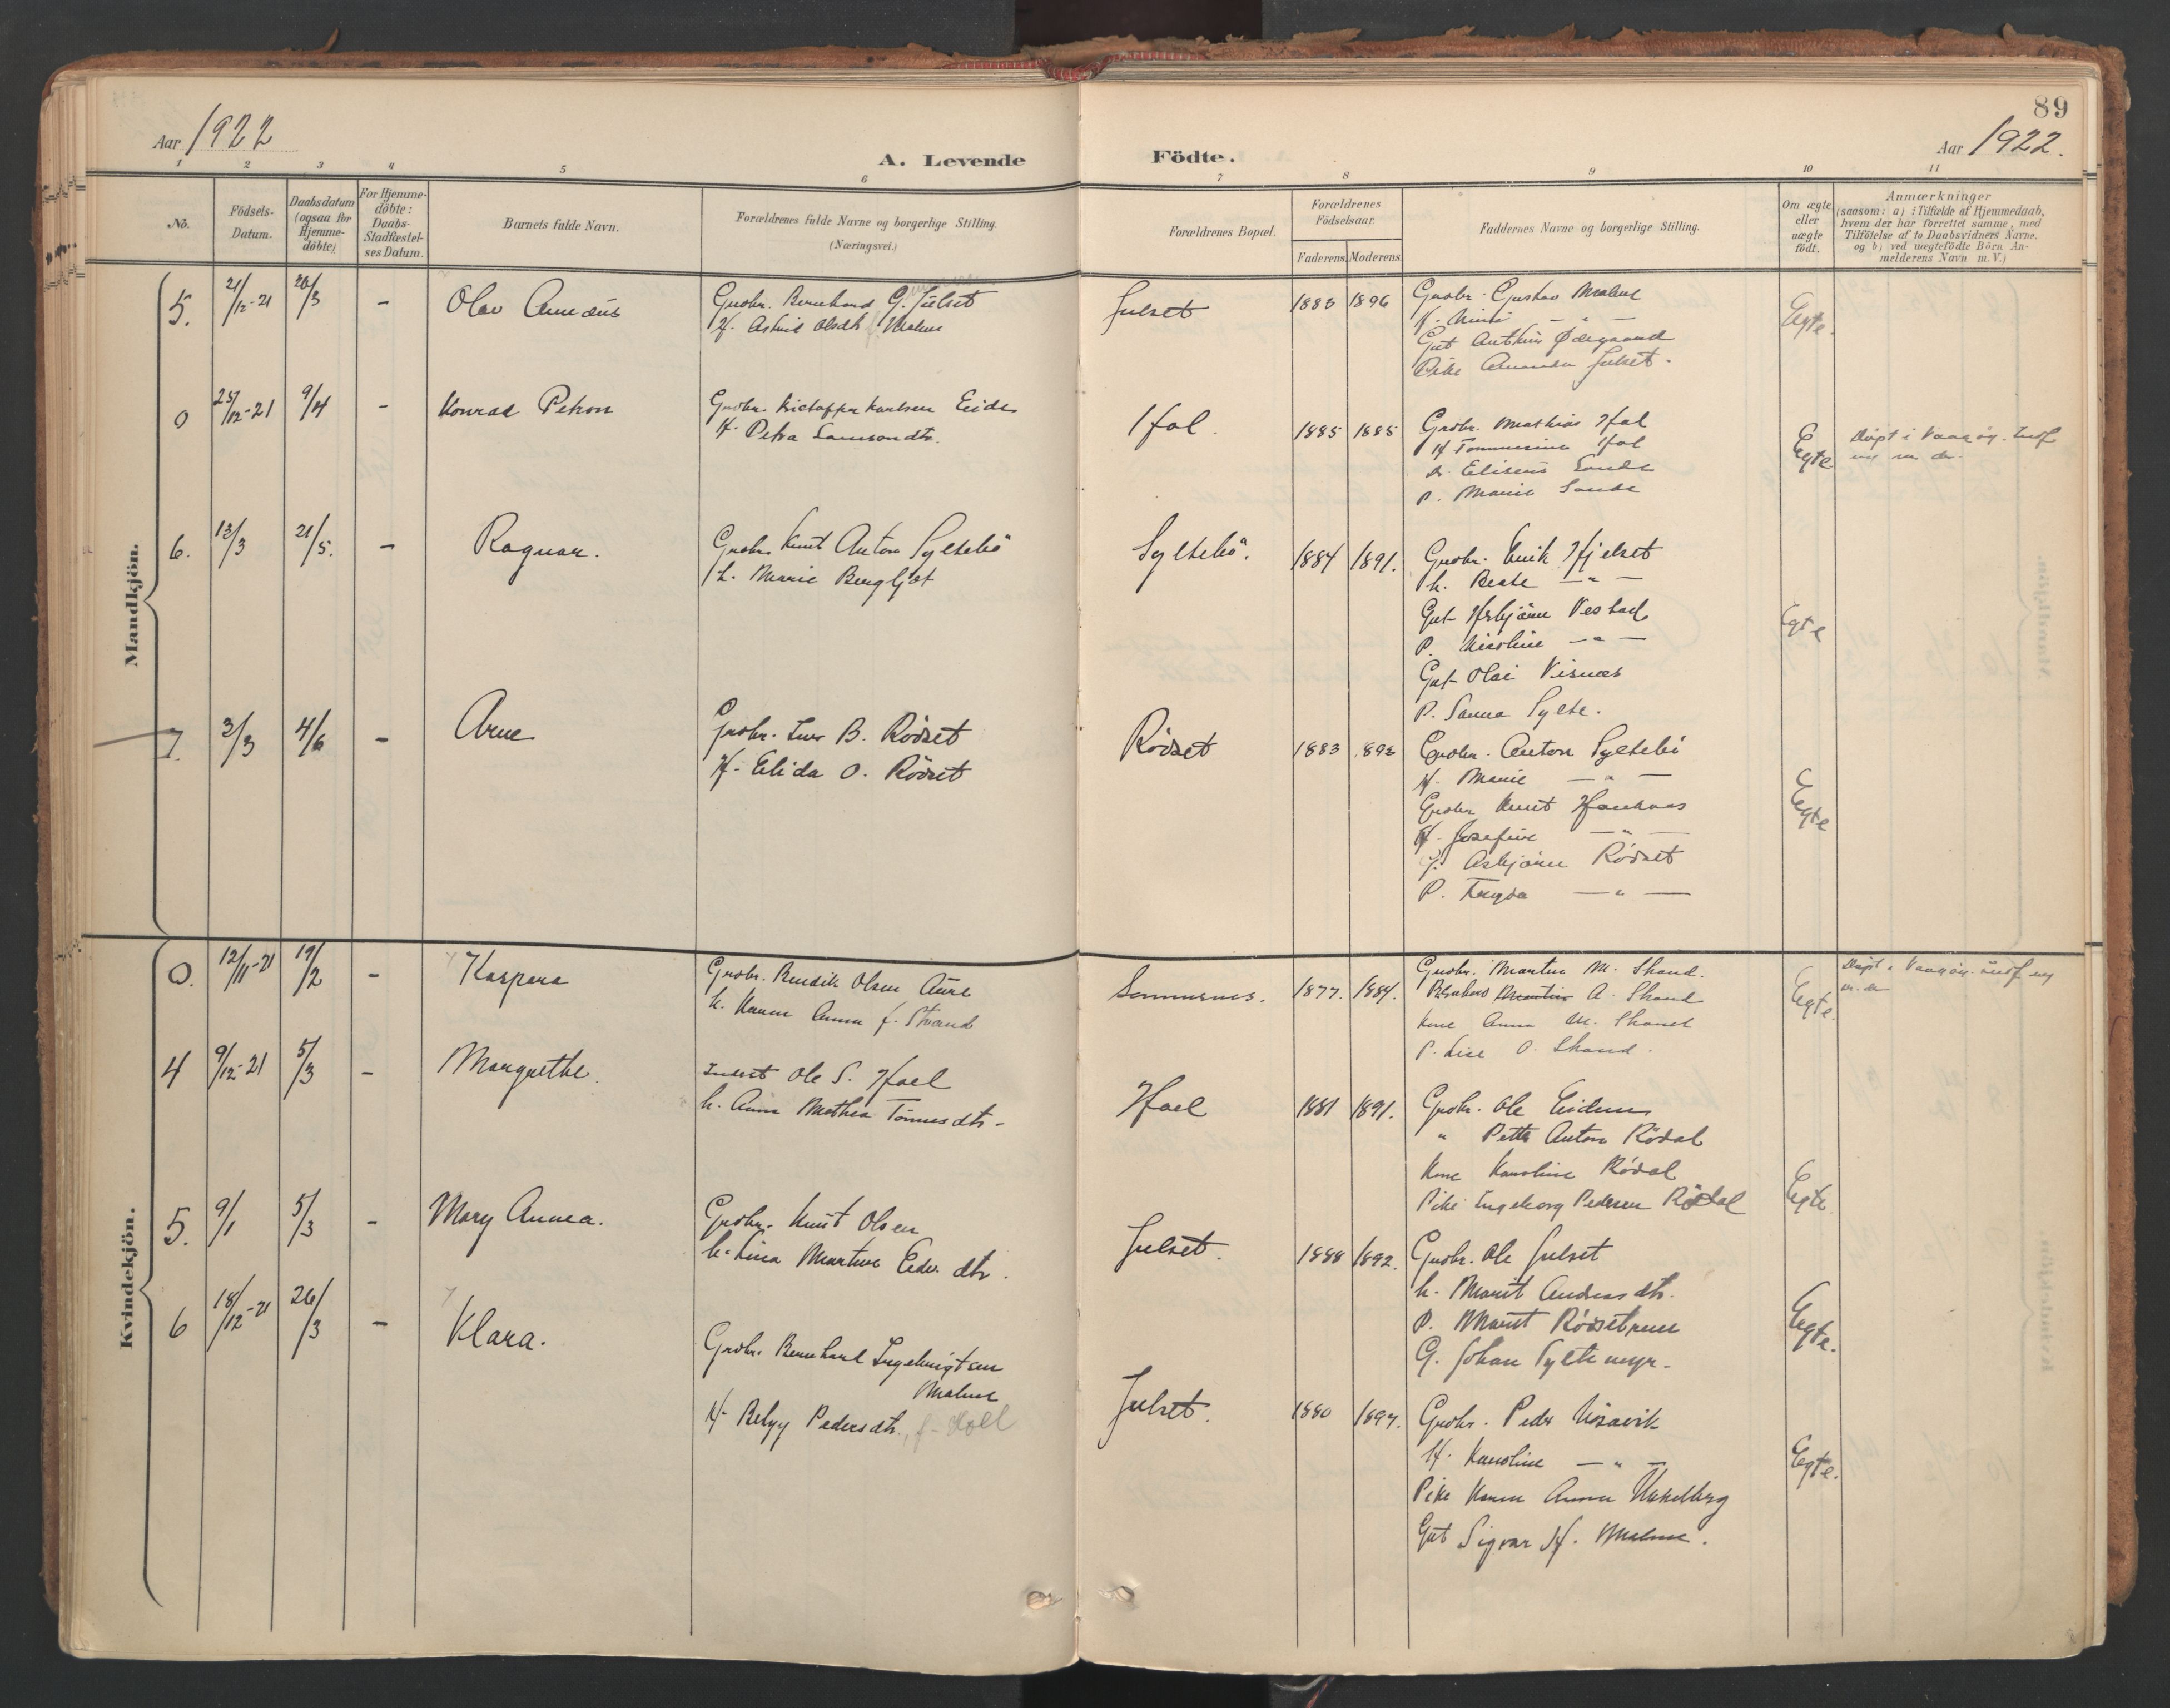 89
Aar 1922
Aar 1922.
A. Levende Födte.
1 2 3 4 5 6 7 8 9 10 11
No.
Födsels-Datum.
Daabsdatum (ogsaa for Hjemme-döbte)
For Hjemme-döbte: Daabs-Stadfæstel-ses Datum.
Barnets fulde Navn.
Forældrenes fulde Navne og borgerlige Stilling. (Næringsvei.)
Forældrenes Bopæl.
Forældrenes Födselsaar.
Faderens. Moderens.
Faddernes Navne og borgerlige Stilling.
Om ægte eller uægte födt.
Anmærkninger
(saasom: a) i Tilfælde af Hjemmedaab,
hvem der har forrettet samme, med
Tilföielse af to Daabsvidners Navne,
og b) ved uegtefödte Börn An-
melderens Navn m. V.)
Mandkjön.
5. 21/12-21 26/3 - Olav Amæus
Grdbr. Bernhard G. Julset
H. Astrid Olsdtr. Malme
Julset 1883 1896
Grdbr. Gustav Malme
Gut Anthin Ødegaard
Pike Amanda Julset.
Egte.
0 25/12-21 9/4 - Konrad Petron
Grdbr. Kristoffer Karlsen Eide
H. Petra Samsondtr.
Hol. 1885 1885
Grdbr. Mathias Hol
H Tommesine Hol
Eliseus Sande
P. Marie Sande
Egte
Døpt i Vaagøy.
6. 13/3 21/5. - Ragnar.
Grdbr. Knut Anton Syltebö
h. Marie Bergljot
Syltebö. 1884 1891.
Grdbr. Erik Hjelset
h. Beate — " —
Gut Asbjörn Vestad
P. Nicoline — " —
Gut Olai Visnes
P. Sanna Sylte.
Egte
7. 3/3 4/6 - Arne
Grdbr. Iver B. Rödset
H. Elida O. Rödset
Rödset 1883 1892
Grdbr. Anton Syltebö
H. Marie — " —
Grdbr Knut Haukaas
H. Josefine — " —
G. Asbjörn Rödset
P. Tragda — " —
Egte
Kvindekjön.
0. 12/11-21 19/2 - Kaspara
Grdbr. Bendik Olsen Aure
h. Karen Anna f. Strand
Sommernes. 1877. 1884.
Grdbr. Martin M. Strand.
A. Strand
Kone Anna M. Strand
P. Lise O. Strand.
Egte.
Døpt i Vaagøy.
4 9/12-21 5/3 - Margrethe.
Inderst Ole S. Hoel
h. Anna Mathea Tönnesdtr.
Hoel 1881 1891.
Grdbr. Ole Eidem
" Petter Anton Rödal
Kone Karoline Rödal
Pike Ingeborg Pedersen Rödal
Egte
5. 9/1 5/3 - Mary Annea.
Grdbr. Knut Olsen
h. Lina Martine Eder dtr.
Julset. 1888 1892.
Grdbr. Ole Julset
h. Marit Andersdtr.
P. Marit Rödsetmen
G. Johan Syltemyr.
Egte.
6 18/12-21 26/3 - Klara.
Grdbr. Bernhard Ingebrigtsen
Malme
H. Belgy Pedersdtr., f. Hoel
Julset. 1880 1897.
Grdbr. Peder Nösavik
H. Karoline — " —
Pike Karen Anna Kakelberg
Gut Sigvar H. Malme.
Egte.